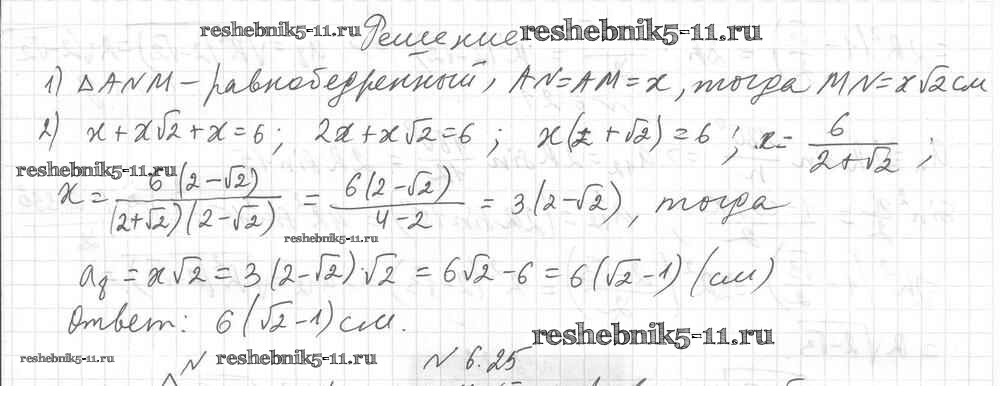 reshebnik5-11.ru Решение reshebnik5-11.ru
1) △ANM – равнобедренный, AN=AM=x, тогда MN=x√2 см
2) x+x√2+x=6; 2x+x√2=6; x(2+√2)=6; x= 6/(2+√2);
reshebnik5-11.ru
x= 6(2-√2)/((2+√2)(2-√2)) = 6(2-√2)/(4-2) = 3(2-√2), тогда
reshebnik5-11.ru
a₈ = x√2 = 3(2-√2)·√2 = 6√2-6 = 6(√2-1) (см)
Ответ: 6(√2-1) см.
reshebnik5-11.ru
reshebnik5-11.ru reshebnik5-11.ru N 6.25